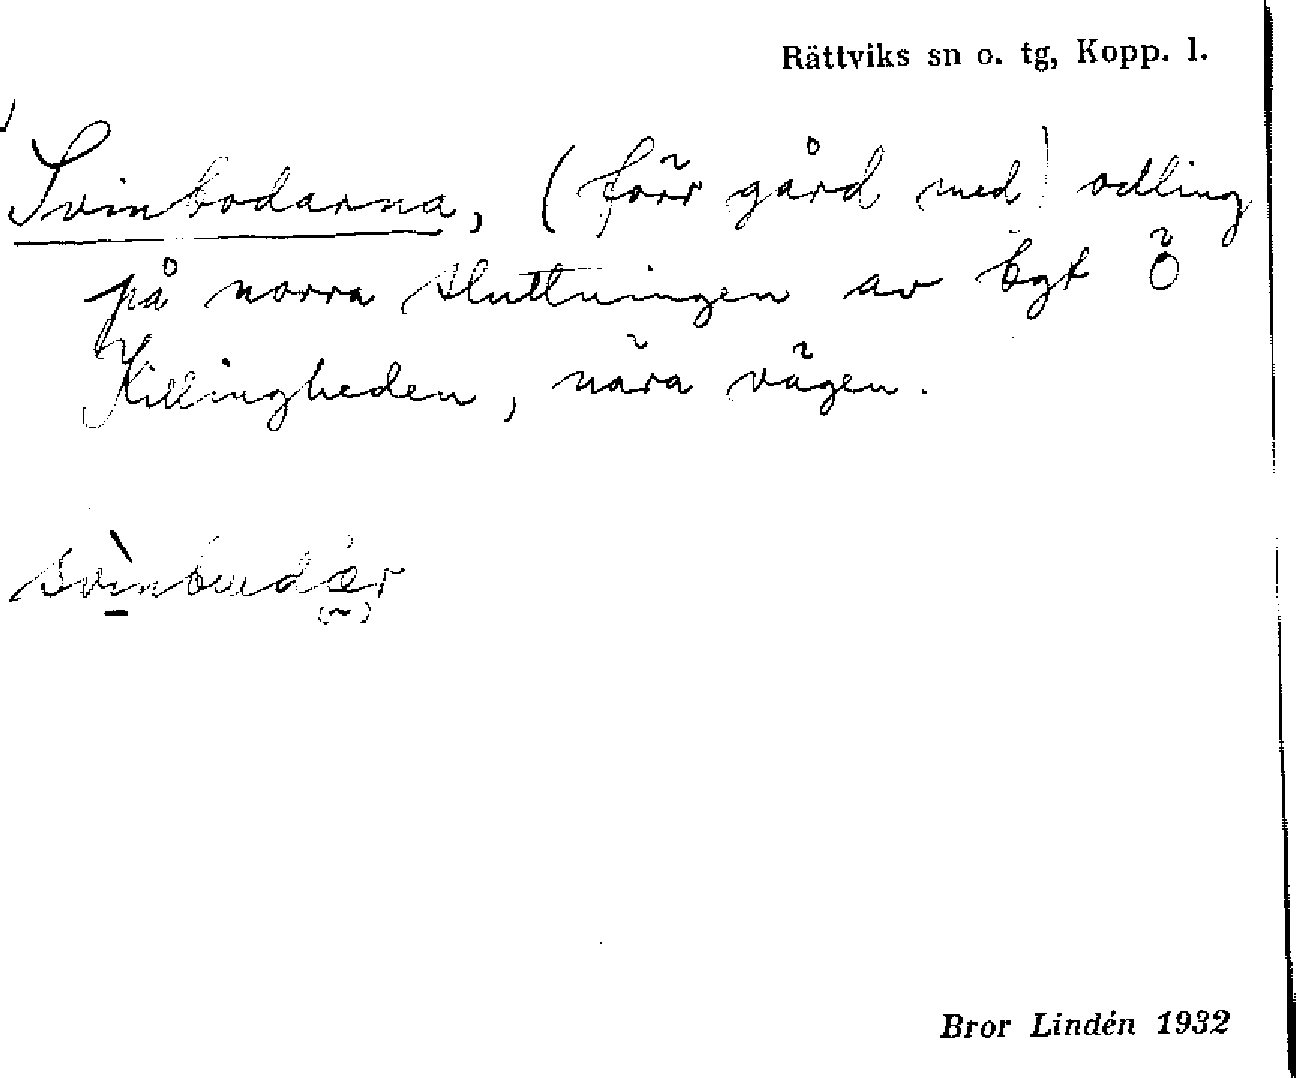 Rättviks sn o. tg, Kopp. l.
Svinbodarna, (förr gård med) odling
på norra sluttningen av bgt Ö
Killingheden, nära vägen.
svìnbudær
(~)
Bror Lindén 1932